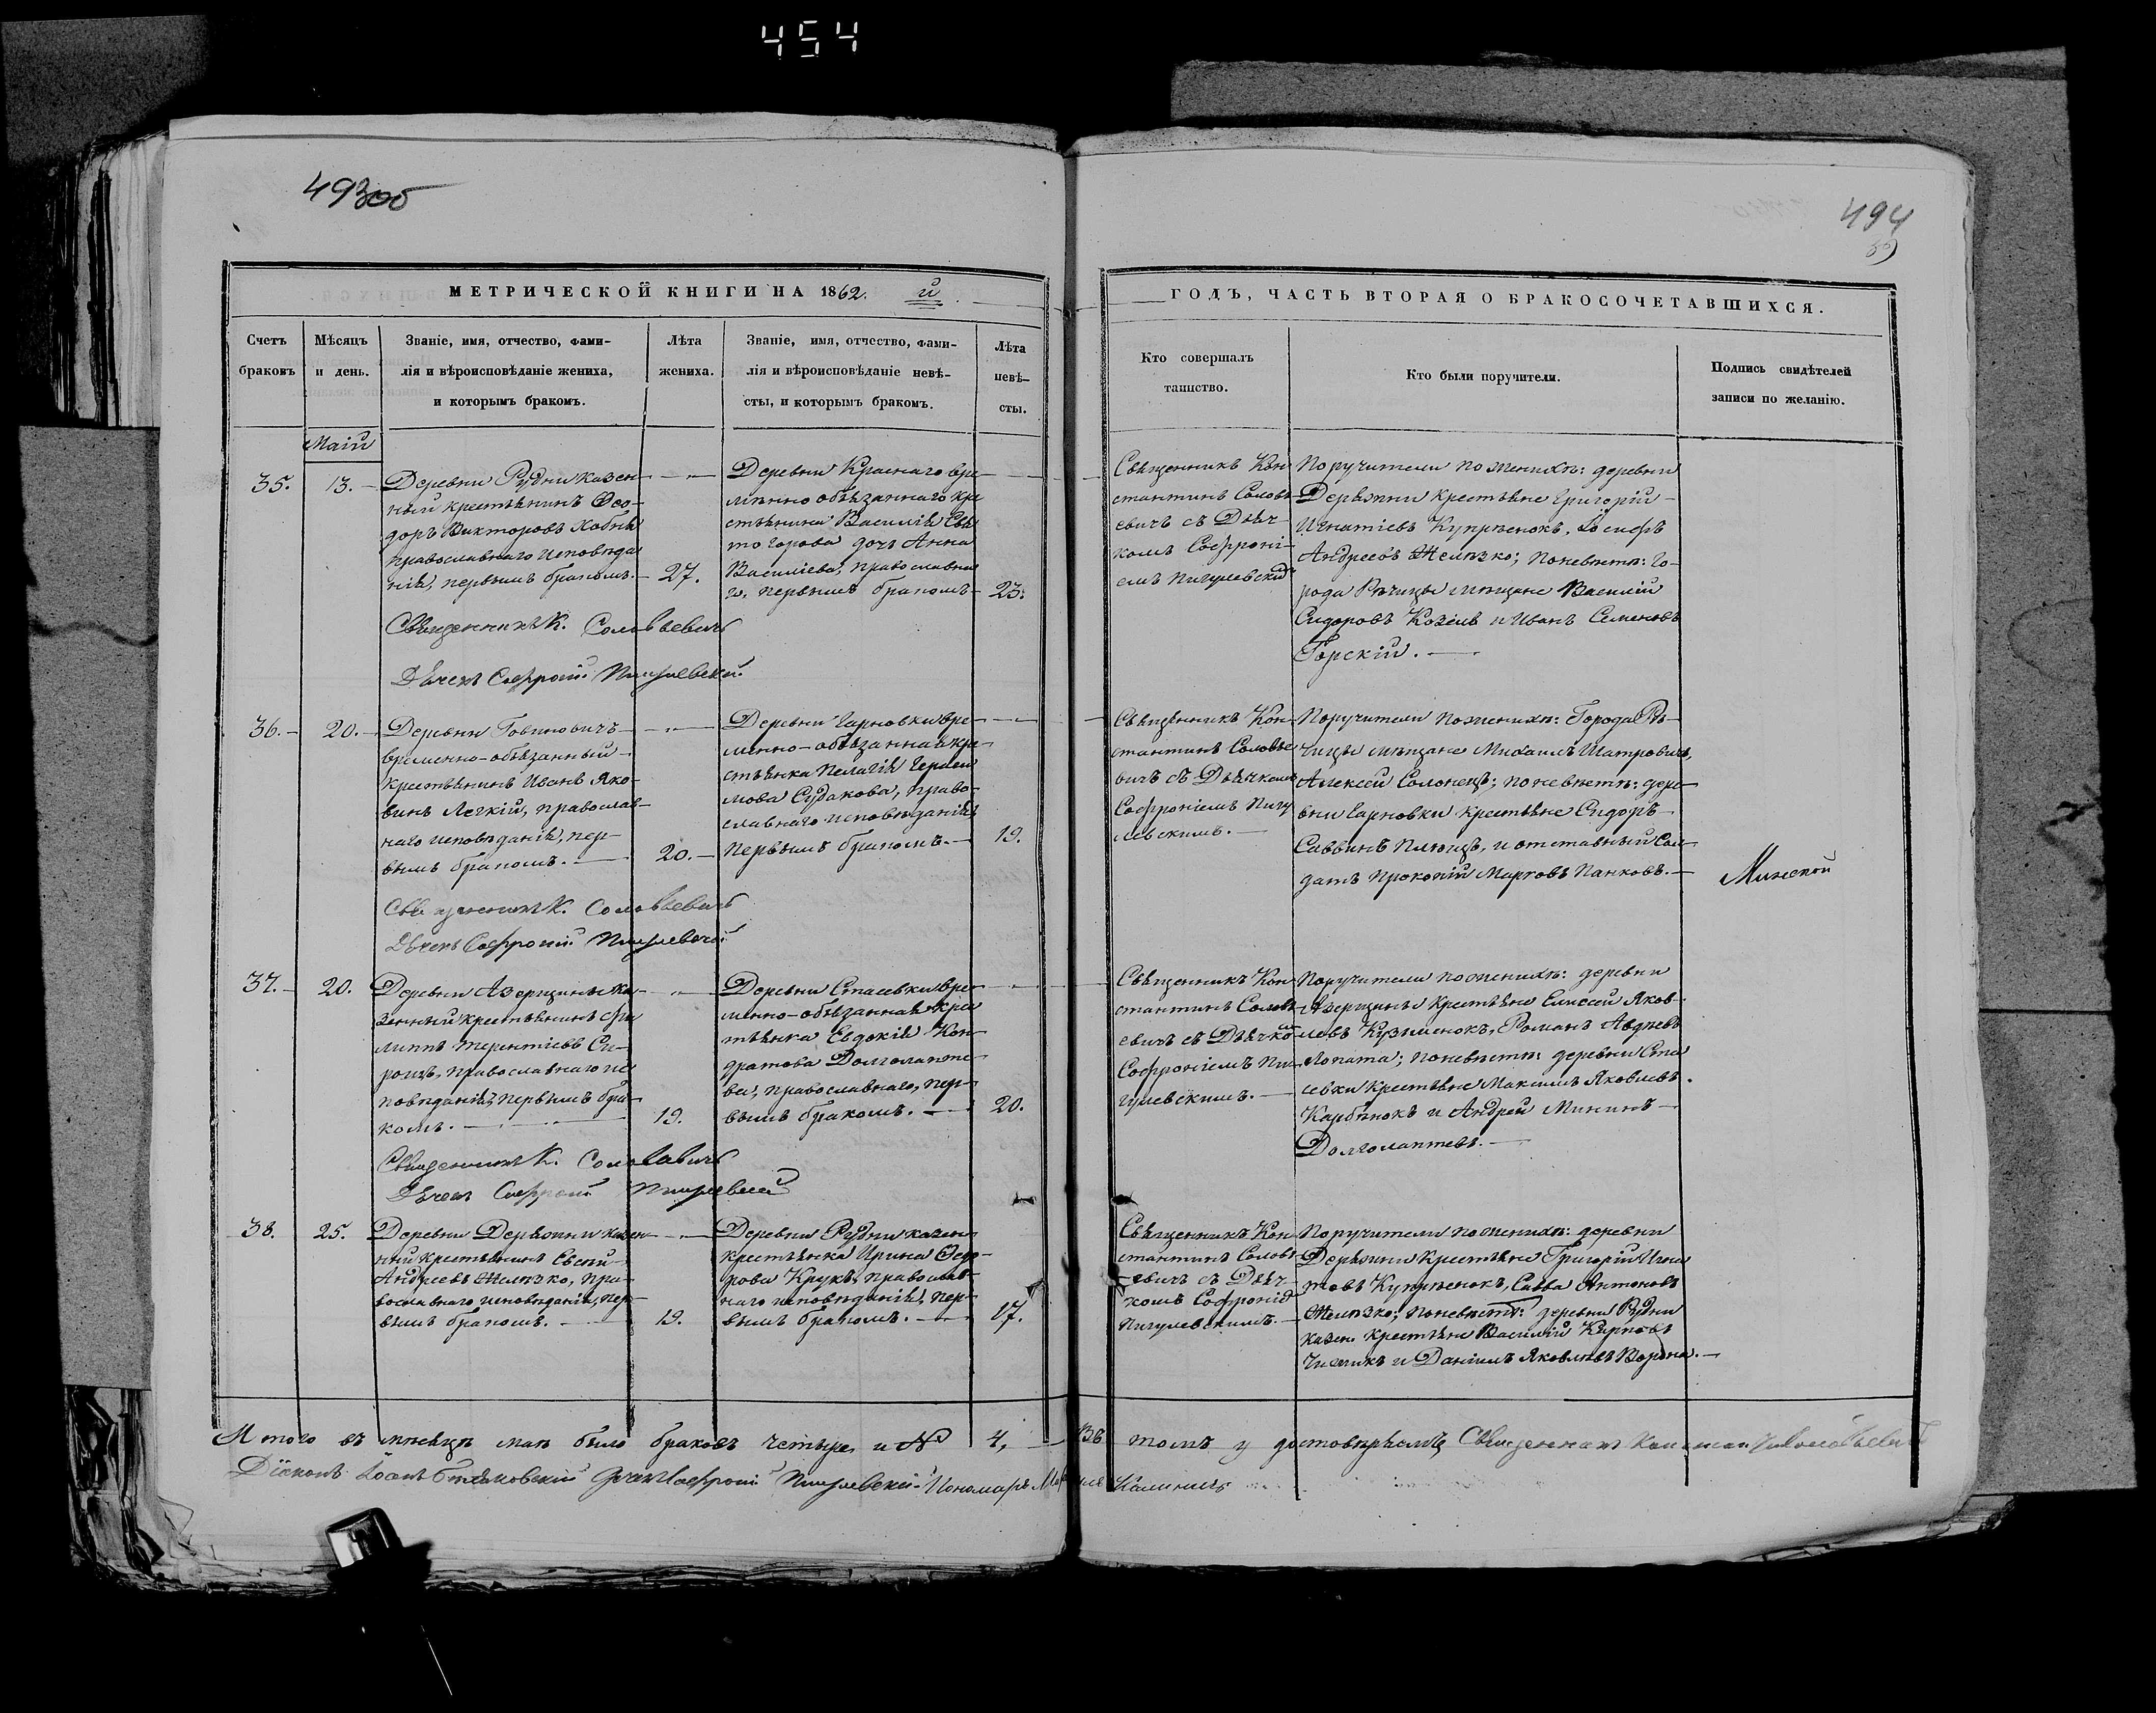 454
493об
494
МЕТРИЧЕСКОЙ КНИГИ НА 1862. й
ГОДЪ, ЧАСТЬ ВТОРАЯ О БРАКОСОЧЕТАВШИХСЯ.
Счетъ браковъ
Мѣсяцъ и день.
Званіе, имя, отчество, фами-
лія и вѣроисповѣданіе жениха,
и которымъ бракомъ.
Лѣта
жениха.
Званіе, имя, отчество, фами-
лія и вѣроисповѣданіе невѣ-
сты, и которымъ бракомъ.
Лѣта
невѣ-
сты.
Кто совершалъ
таинство.
Кто были поручители.
Подпись свидѣтелей
записи по желанію.
Маій
35.
13.
Деревни Рудни казен-
ный крестьянинъ Ѳео-
доръ Викторовъ
православнаго исповѣда
нія, первымъ бракомъ.
27.
Деревни Краснаго вре-
мѣнно обязаннаго кре
стьянина Василія
дочь Анна
Василіева, православна
го, первымъ бракомъ
23.
Священникъ К. Соловьевичъ
Дьячекъ Софроній Пигулевскій
Священникъ Кон
стантинъ Соловь
евичъ съ Дьяч-
комъ Софроні-
емъ Пигулевскій
Поручители по женихѣ: деревни
Деражни крестьяне Григорій
Игнатіевъ Купрѣенокъ, Іосифъ
Андреевъ Желѣзко; по невѣстѣ: Го-
рода Рѣчицы мѣщане Василій
Сидоровъ Козелъ и Иванъ Семеновъ
Горскій.
36.
20.
Деревни Говиновичъ
временно-обязанный
крестьянинъ Иванъ Яко-
винъ Легкій, православ-
наго исповѣданія, пер-
вымъ бракомъ.
20.
Деревни Гарновки вре-
менно-обязанная кре-
стьянка Пелагія Гераси
мова Судакова, право-
славнаго исповѣданія,
первымъ бракомъ.
19.
Священникъ К. Соловьевичъ
Дьячекъ Софроній Пигулевскій
Священникъ Кон-
стантинъ Соловье
вичъ съ Дьячкомъ
Софроніемъ Пигу
левскимъ.
Поручители по женихѣ: Города Рѣ-
чицы мѣщане Михаилъ Шатровичъ,
Алексей Солонецъ; по невѣстѣ: дере-
вни Гарновки крестьяне Сидоръ
Саввинъ и отставный Сол-
датъ Прокопій Марковъ Панковъ.
37.
20.
Деревни Азерщины ка-
зенный крестьянинъ Фи
липпъ Терентіевъ Си-
ротъ, православнаго ис
повѣданія, первымъ бра-
комъ.
19.
Деревни Стасевки вре-
менно-обязанная крес
тьянка Евдокія Кон-
дратова Долголапте-
ва, православнаго, пер-
вымъ бракомъ.
20.
Священникъ К. Соловьевичъ
Дьячекъ Софроній Пигулевскій
Священникъ Кон-
стантинъ Соловь
евичъ съ Дьячко
Софроніемъ Пи-
гулевскимъ.
Поручители по женихѣ: деревни
Азерщины крестьяне Елисей Яков-
левъ Кузменокъ, Романъ Авдѣевъ
Лопата; по невѣстѣ: деревни Ста
севки крестьяне Максимъ Яковлевъ
и Андрей Мининъ
Долголаптевъ.
38.
25.
Деревни Деражни казен
ный крестьянинъ Евсей
Андреевъ Желѣзко, пра-
вославнаго исповѣданія, пер-
вымъ бракомъ.
19.
Деревни Рудни казен
крестьянка Ирина Ѳедо-
рова Крукъ, православ-
наго исповѣданія, пер-
вымъ бракомъ.
17.
Священникъ Кон
стантинъ Соловь
евичъ съ Дьяч-
комъ Софроній
Пигулевскимъ.
Поручители по женихѣ: деревни
Деражни крестьяне Григорій Игна
товъ Купрѣенокъ, Савва Антоновъ
Желѣзко; по невѣстѣ: деревни Рудни
казен. крестьяне Василій Карповъ
Чижикъ и Даніилъ Яковлевъ Ворона.
Итого въ мѣсяцѣ маѣ было браковъ четыре и № 4, Въ томъ удостовѣряемъ Священникъ Константинъ Соловьевичъ
Діаконъ Іоаннъ Дьячекъ Софроній Пигулевскій Пономарь Калининъ